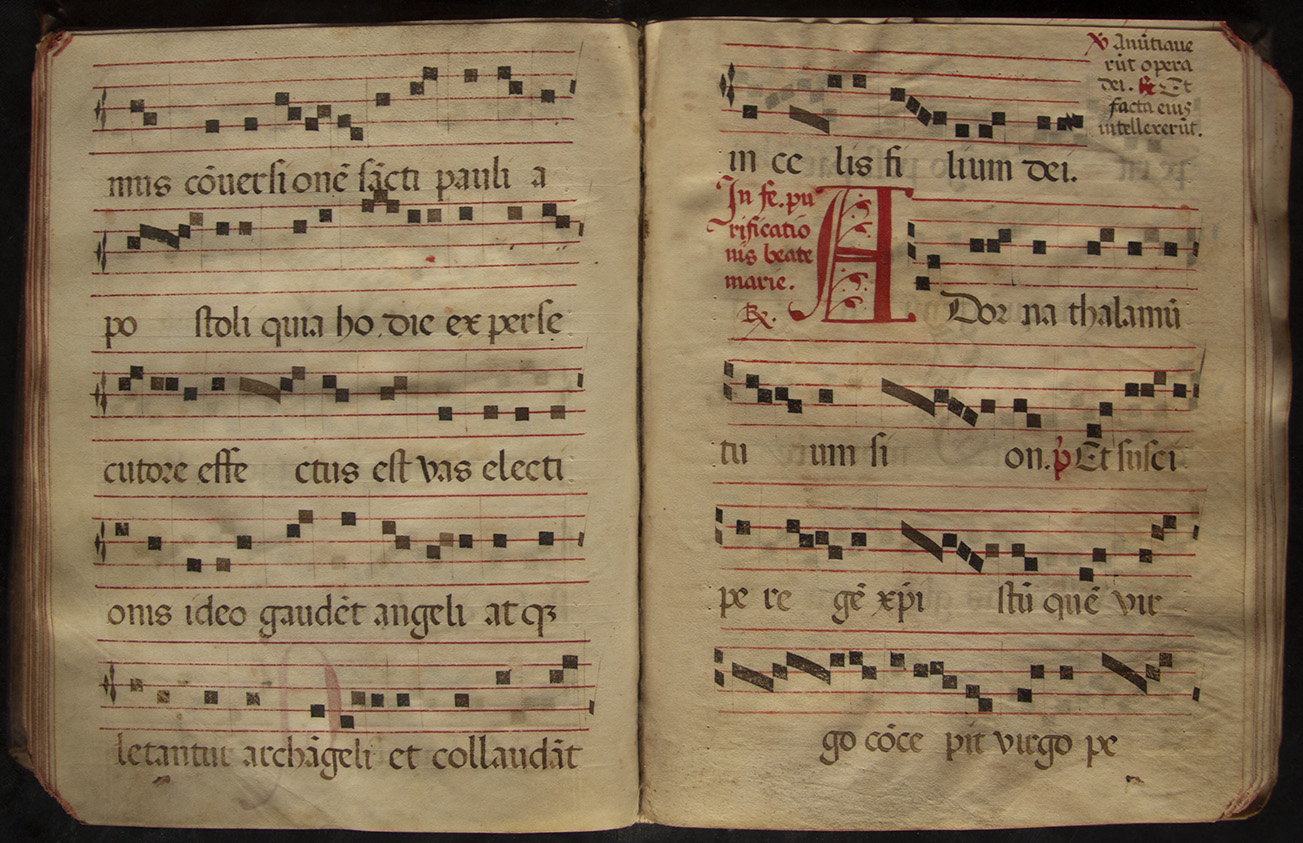 mus cōversi onē sācti pauli a
po stoli quia ho die ex perse
cutore effe ctus est vas electi
onis ideo gaudēt angeli at qꝫ
letantur archāgeli et collaudāt
℣ Anūtiave
rūt opera
dei. ℟ Et
facta eius
intellexerūt.
in ce lis fi lium dei.
In fe. pu
rificatio
nis beate
marie.
℟.
A Dor na thalamū
tu um si on. p̄ Et susci
pe re gē xp̄i stū quē vir
go cōce pit virgo pe